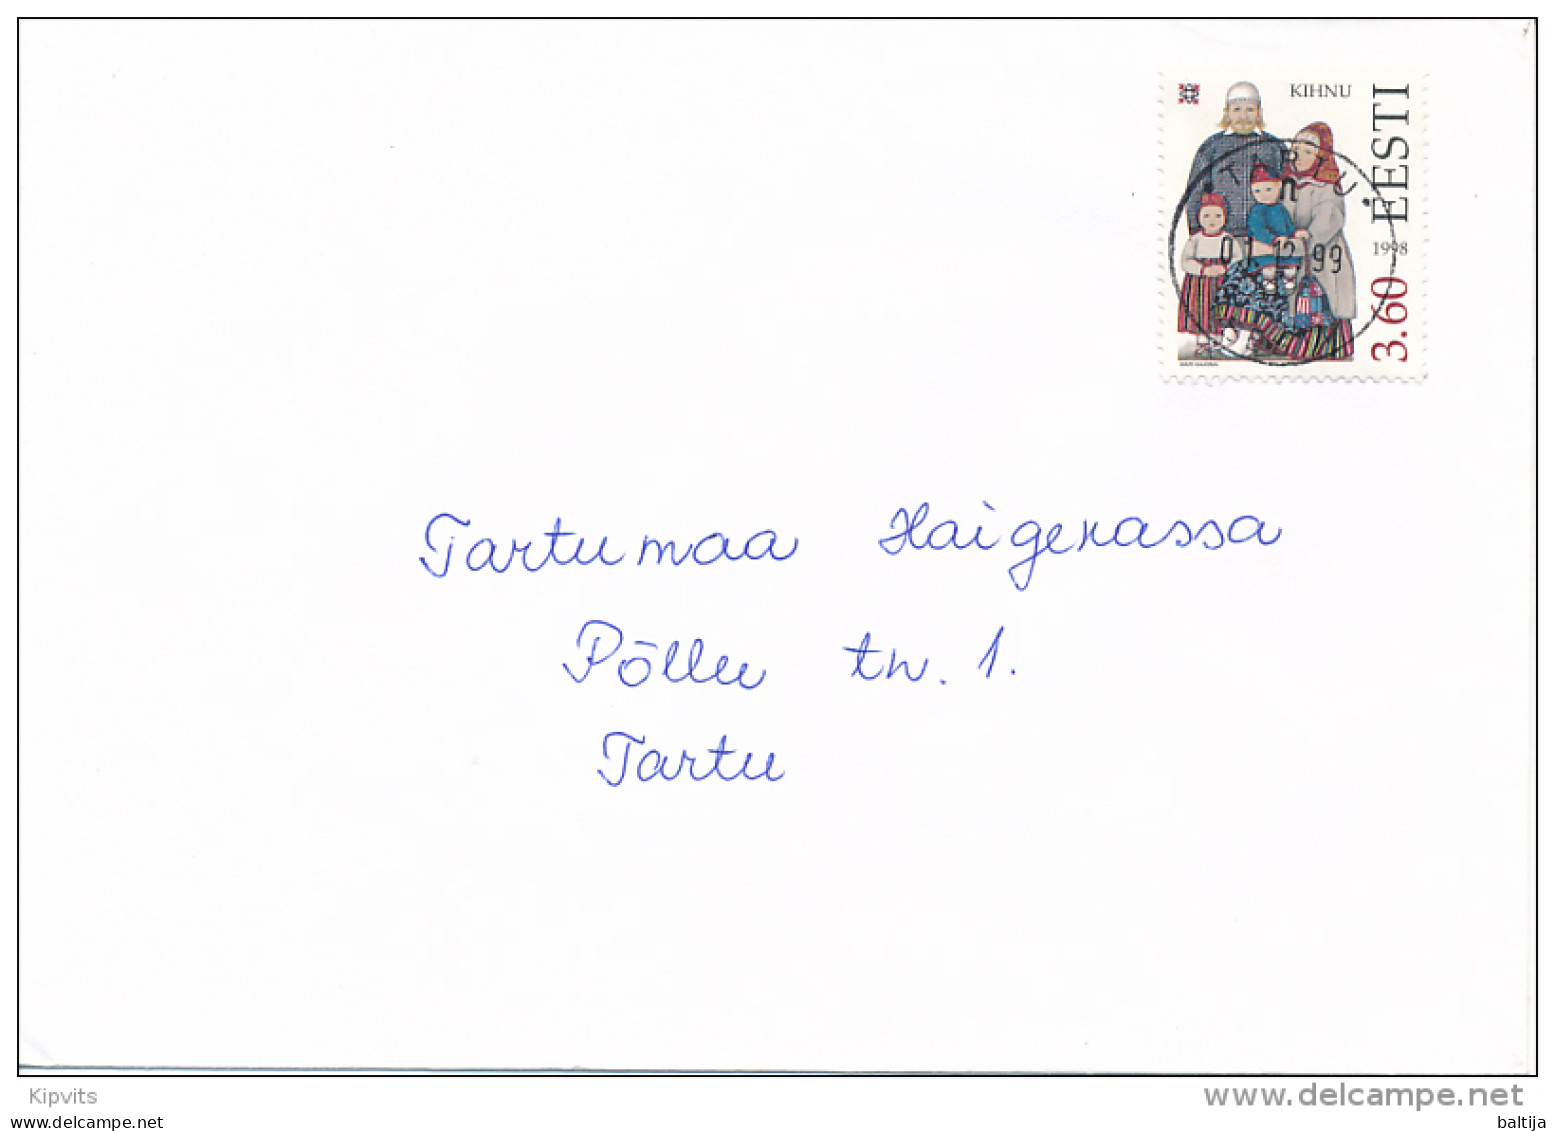 KIHNU
EESTI
1998
3.60
TARTU
n
01 12 99
Tartumaa Haigekassa
Põllu tn. 1.
Tartu
Kipvits
www.delcampe.net
baltija